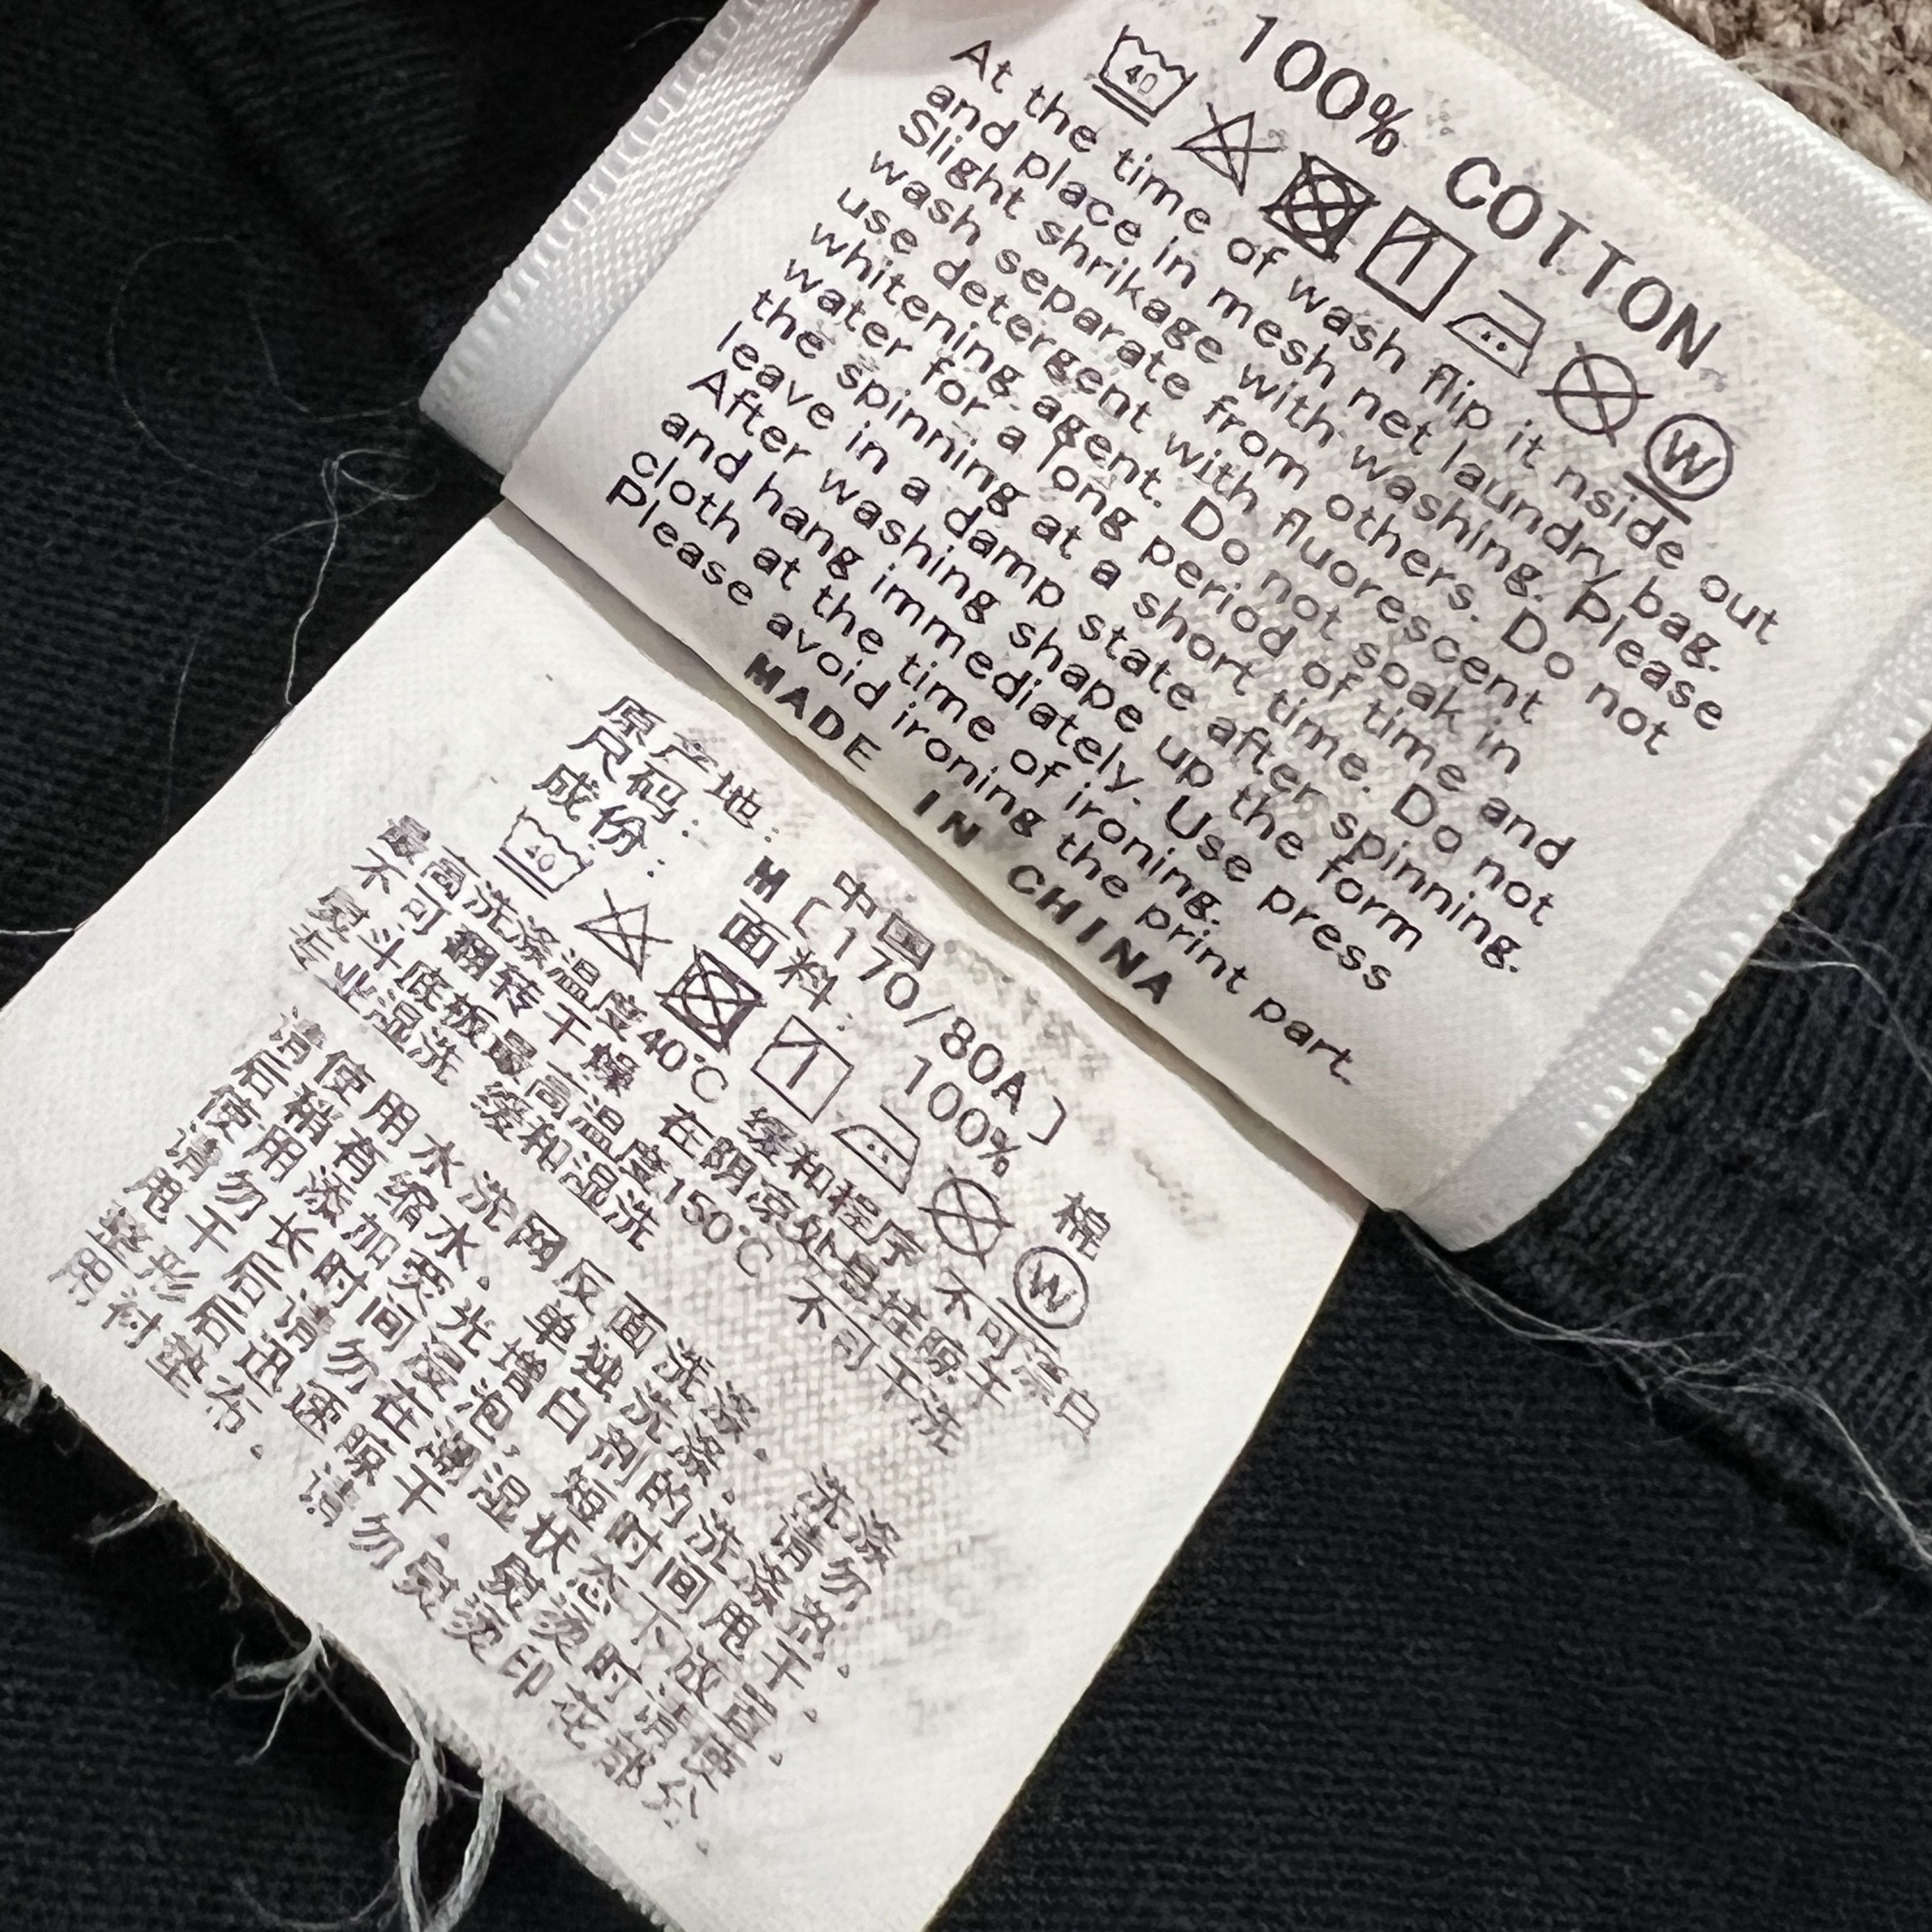 100% COTTON
40
W
At the time of wash flip it nside out
and place in mesh net laundry bag.
Slight shrikage with washing. Please
wash separate from others. Do not
use detergent with fluorescent
whitening agent. Do not soak in
water for a long period of time and
the spinning at a short time. Do not
leave in a damp state after spinning.
After washing shape up the form
and hang immediately. Use press
cloth at the time of ironing.
Please avoid ironing the print part.
MADE IN CHINA
原产地: 中国
尺码: M〔170/80A〕
成份: 面料: 100% 棉
40
W
最高洗涤温度40℃ 缓和程序 不可漂白
不可翻转干燥 在阴凉处悬挂晾干
熨斗底板最高温度150℃ 不可干洗
专业湿洗 缓和湿洗
请使用水洗网反面洗涤。洗涤
后稍有缩水。单独洗涤。请勿
使用添加荧光增白剂的洗涤剂。
请勿长时间浸泡，短时间甩干。
甩干后请勿在潮湿状态下放置。
整形后迅速晾干。熨烫时请使
用衬垫布。请勿熨烫印花部分。